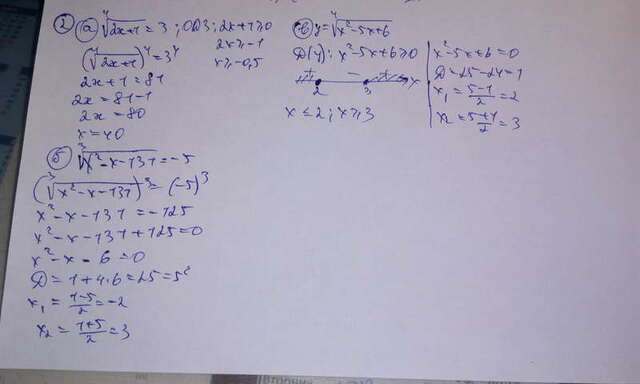 2) а) ⁴√(2x+1) = 3 ; ОДЗ: 2x+1≥0
2x≥-1
x≥-0,5
(⁴√(2x+1))⁴ = 3⁴
2x+1 = 81
2x = 81-1
2x = 80
x = 40
б) ³√(x²-x-131) = -5
(³√(x²-x-131))³ = (-5)³
x²-x-131 = -125
x²-x-131+125=0
x²-x-6=0
D = 1+4·6=25=5²
x₁ = (1-5)/2 = -2
x₂ = (1+5)/2 = 3
в) y = ⁴√(x²-5x+6)
D(y): x²-5x+6≥0
+ - + x
2 3
x ≤ 2 ; x ≥ 3
x²-5x+6=0
D = 25-24=1
x₁ = (5-1)/2 = 2
x₂ = (5+1)/2 = 3